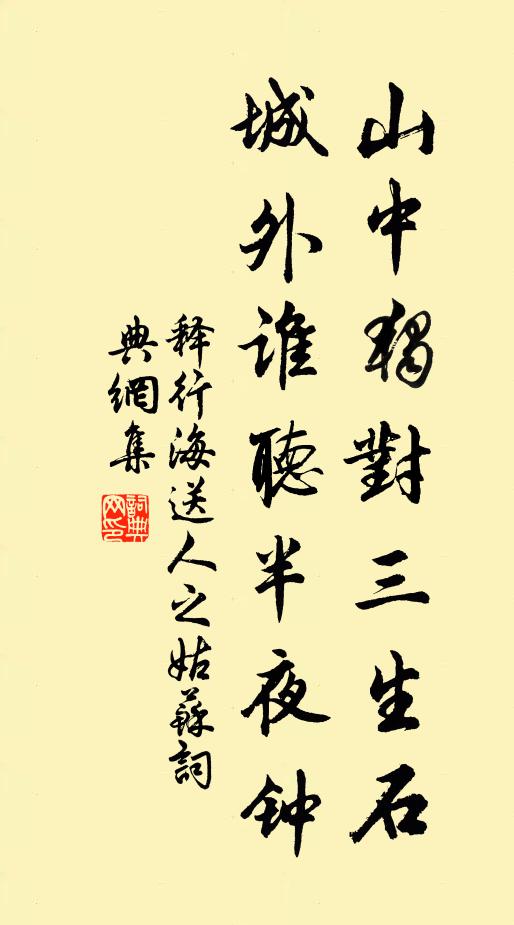 山中獨對三生石
城外誰聽半夜钟
释行海送人之姑蘇詞
典網集
詞典
网印